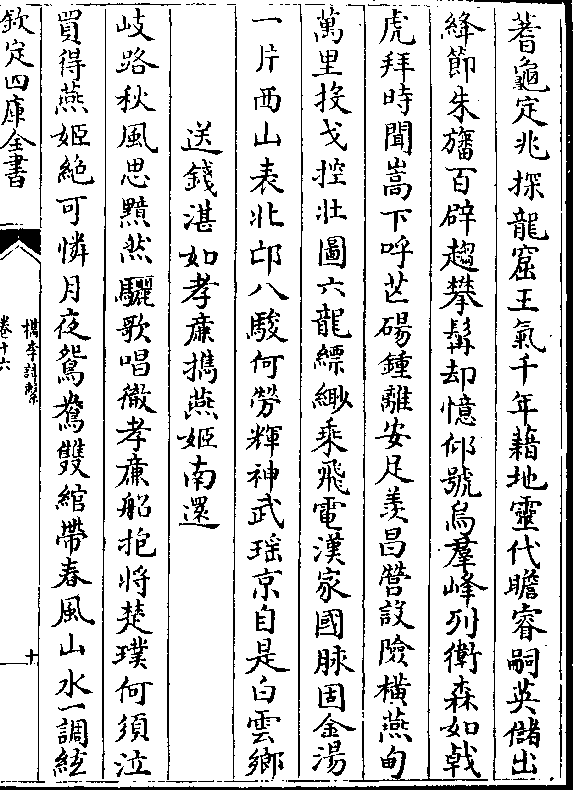 蓍龜定兆探龍窟王氣千年藉地靈代瞻睿嗣英儲出
絳節朱旛百辟趨攀髯却憶仰號烏羣峰列衛森如戟
虎拜時聞嵩下呼芒碭鍾離安足羡昌營設險橫燕甸
萬里投戈控壯圖六龍縹緲乘飛電漢家國脉固金湯
一片西山表北邙八駿何勞輝神武瑶京自是白雲鄉
送錢湛如孝亷攜燕姬南還
岐路秋風思黯然驪歌唱徹孝亷船抱将楚璞何須泣
買得燕姬絶可憐月夜鴛鴦雙綰帶春風山水一調絃
欽定四庫全書
檇李詩繫
卷十六
十